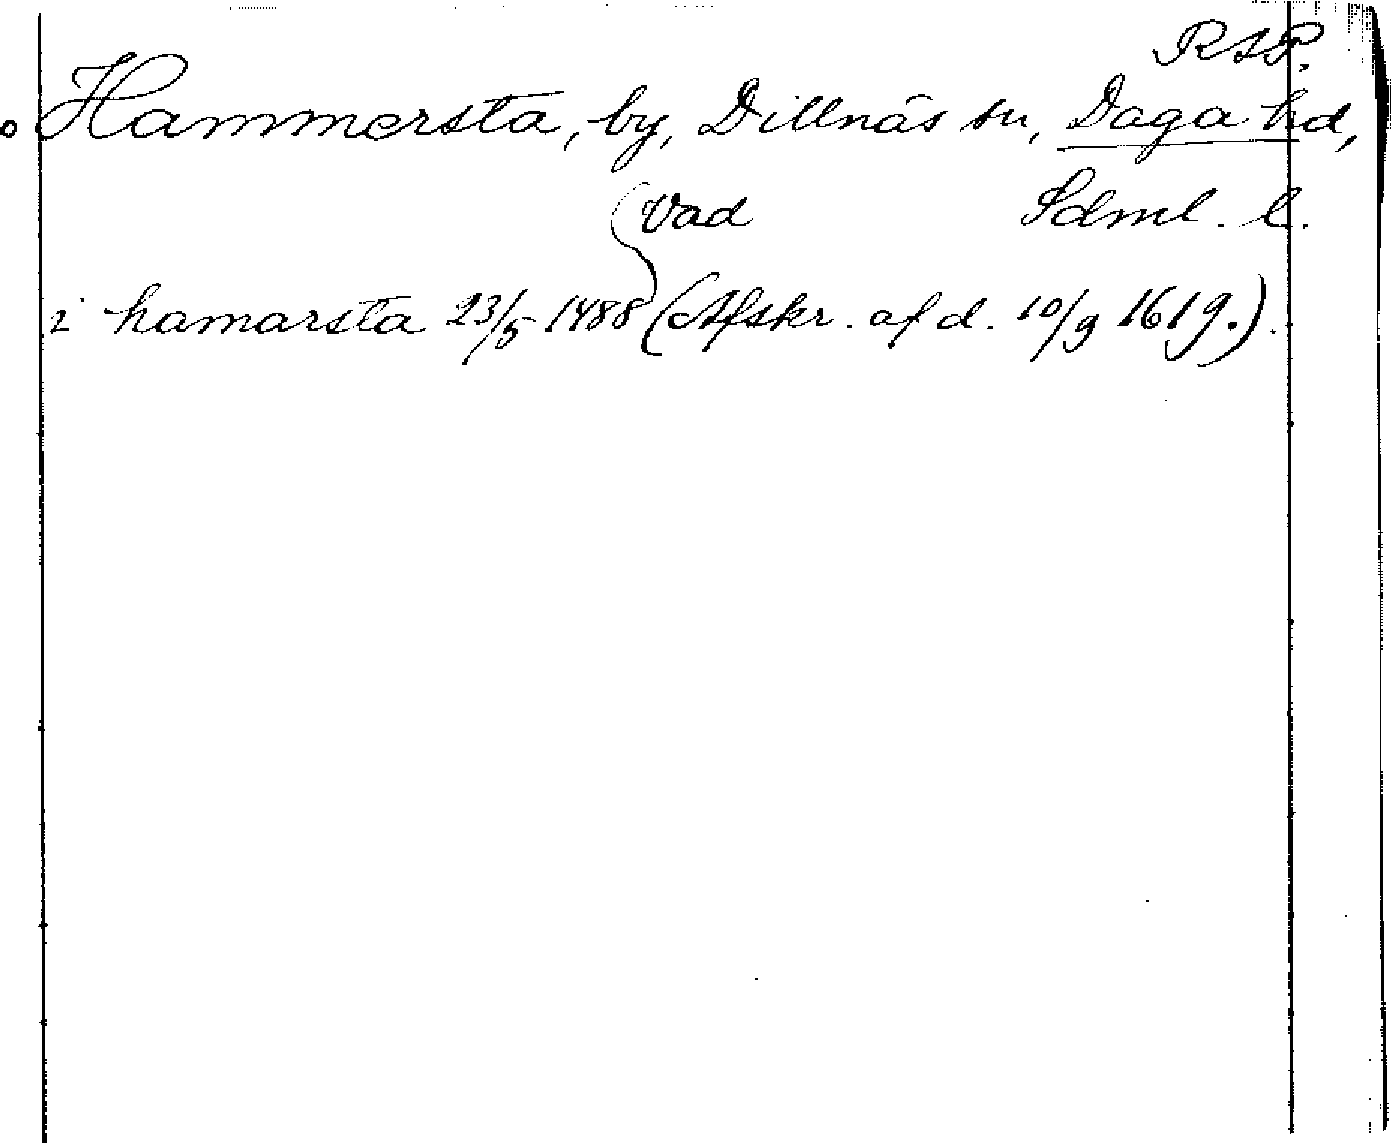 RAP.
Hammersta, by, Dillnäs sn, Daga hd,
Vad Sdml. l.
i hamarsta 23/5 1488 (Afskr. af d. 10/9 1619.).